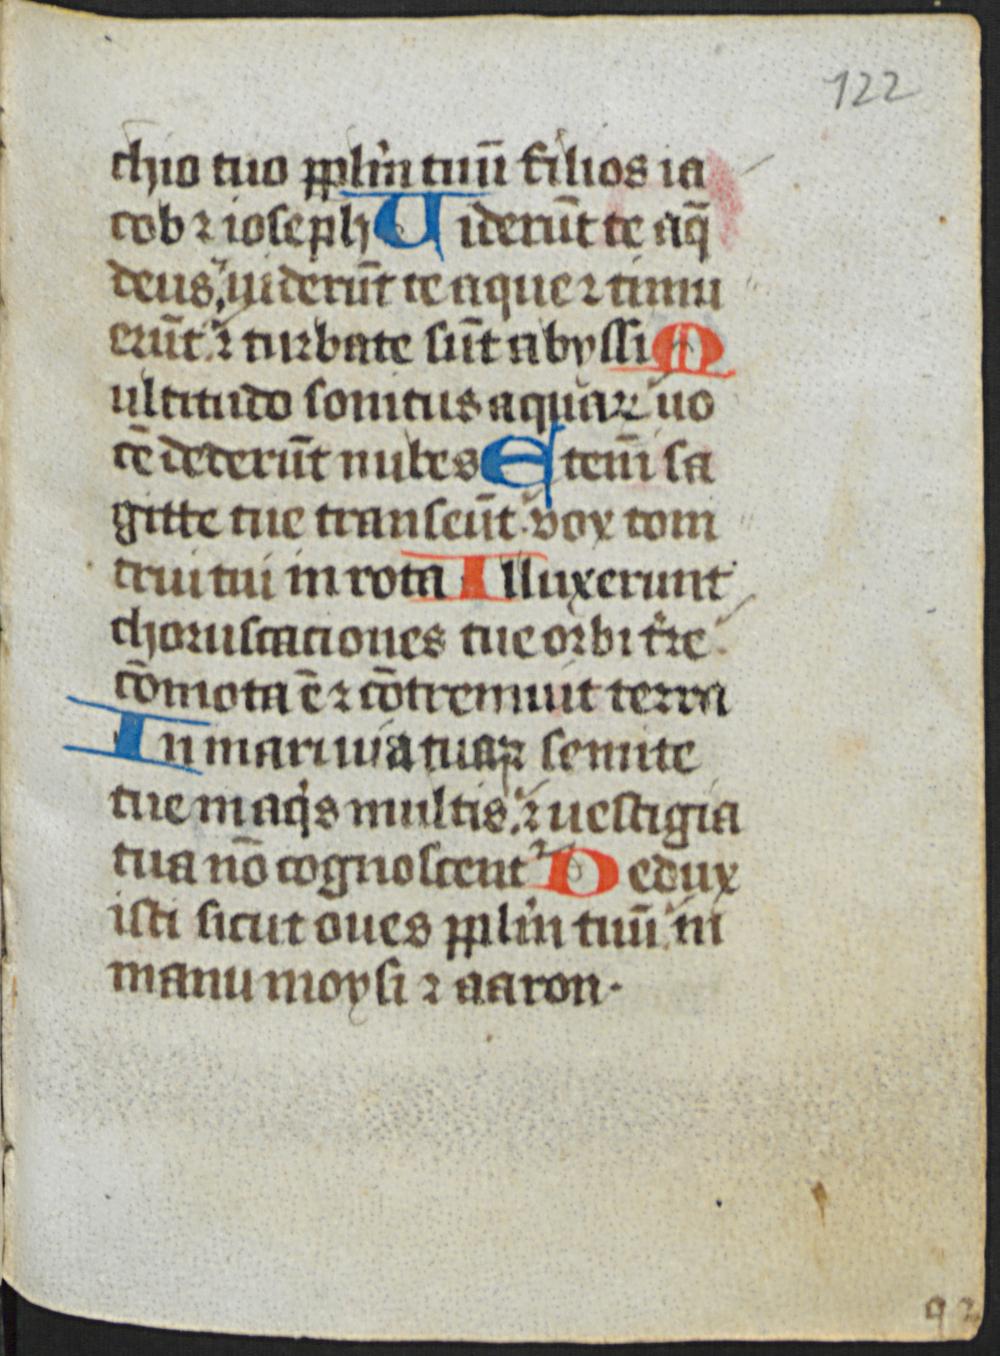 122
chio tuo pplm̄ tuū filios ia
cob ⁊ ioseph Uiderūt te aq̄
deus, uiderūt te aque ⁊ timu
erūt: ⁊ turbate sūt abyssi M
ultitudo sonitus aquaꝝ uo
cē dederūt nubes Eteni̅ sa
gitte tue transeūt: vox toni
trui tui in rota Illuxerunt
choruscationes tue orbi tr̄e
cōmota ē ⁊ cōtremuit terra
In mari uia tua ⁊ semite
tue in aqͥs multis: ⁊ uestigia
tua nō cognoscent Dedux
isti sicut oues pplm̄ tuū in
manu moysi ⁊ aaron.